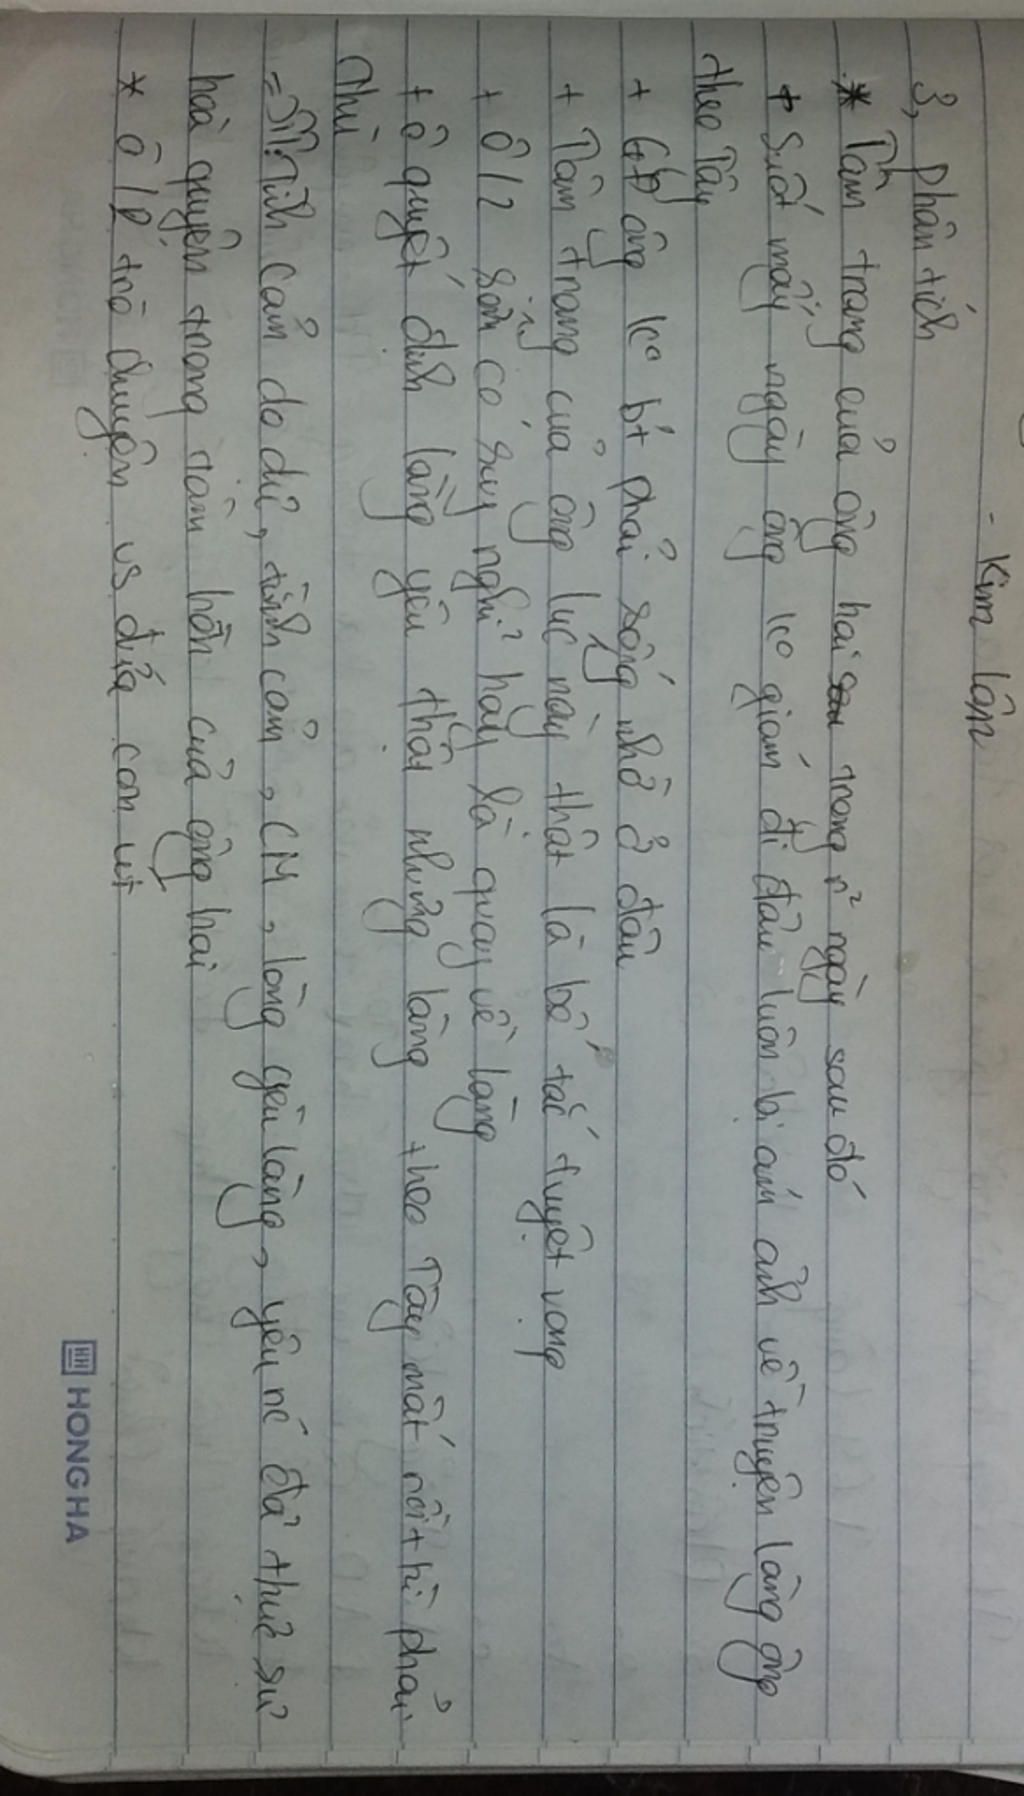 - Kim lân
3, phân tích
* Tâm trạng của ông hai trong n² ngày sau đó
+ Suốt mấy ngày ông ko giám đi đâu luôn bị ám ảnh về truyện làng ông
theo Tây
+ GĐ ông ko bt phải sống nhờ ở đâu
+ Tâm trạng của ông lúc này thật là bế tắc tuyệt vọng
+ Ô có suy nghĩ hay là quay về làng
+ ô quyết định làng yêu thật nhưng làng theo Tây mất rồi thì phải
thù
=> Tình cảm do dự, tình cảm, CM, lòng yêu làng, yêu nc đã thực sự
hoà quyện trong tâm hồn của ông hai
* ô trò chuyện vs đứa con út
HONG HA